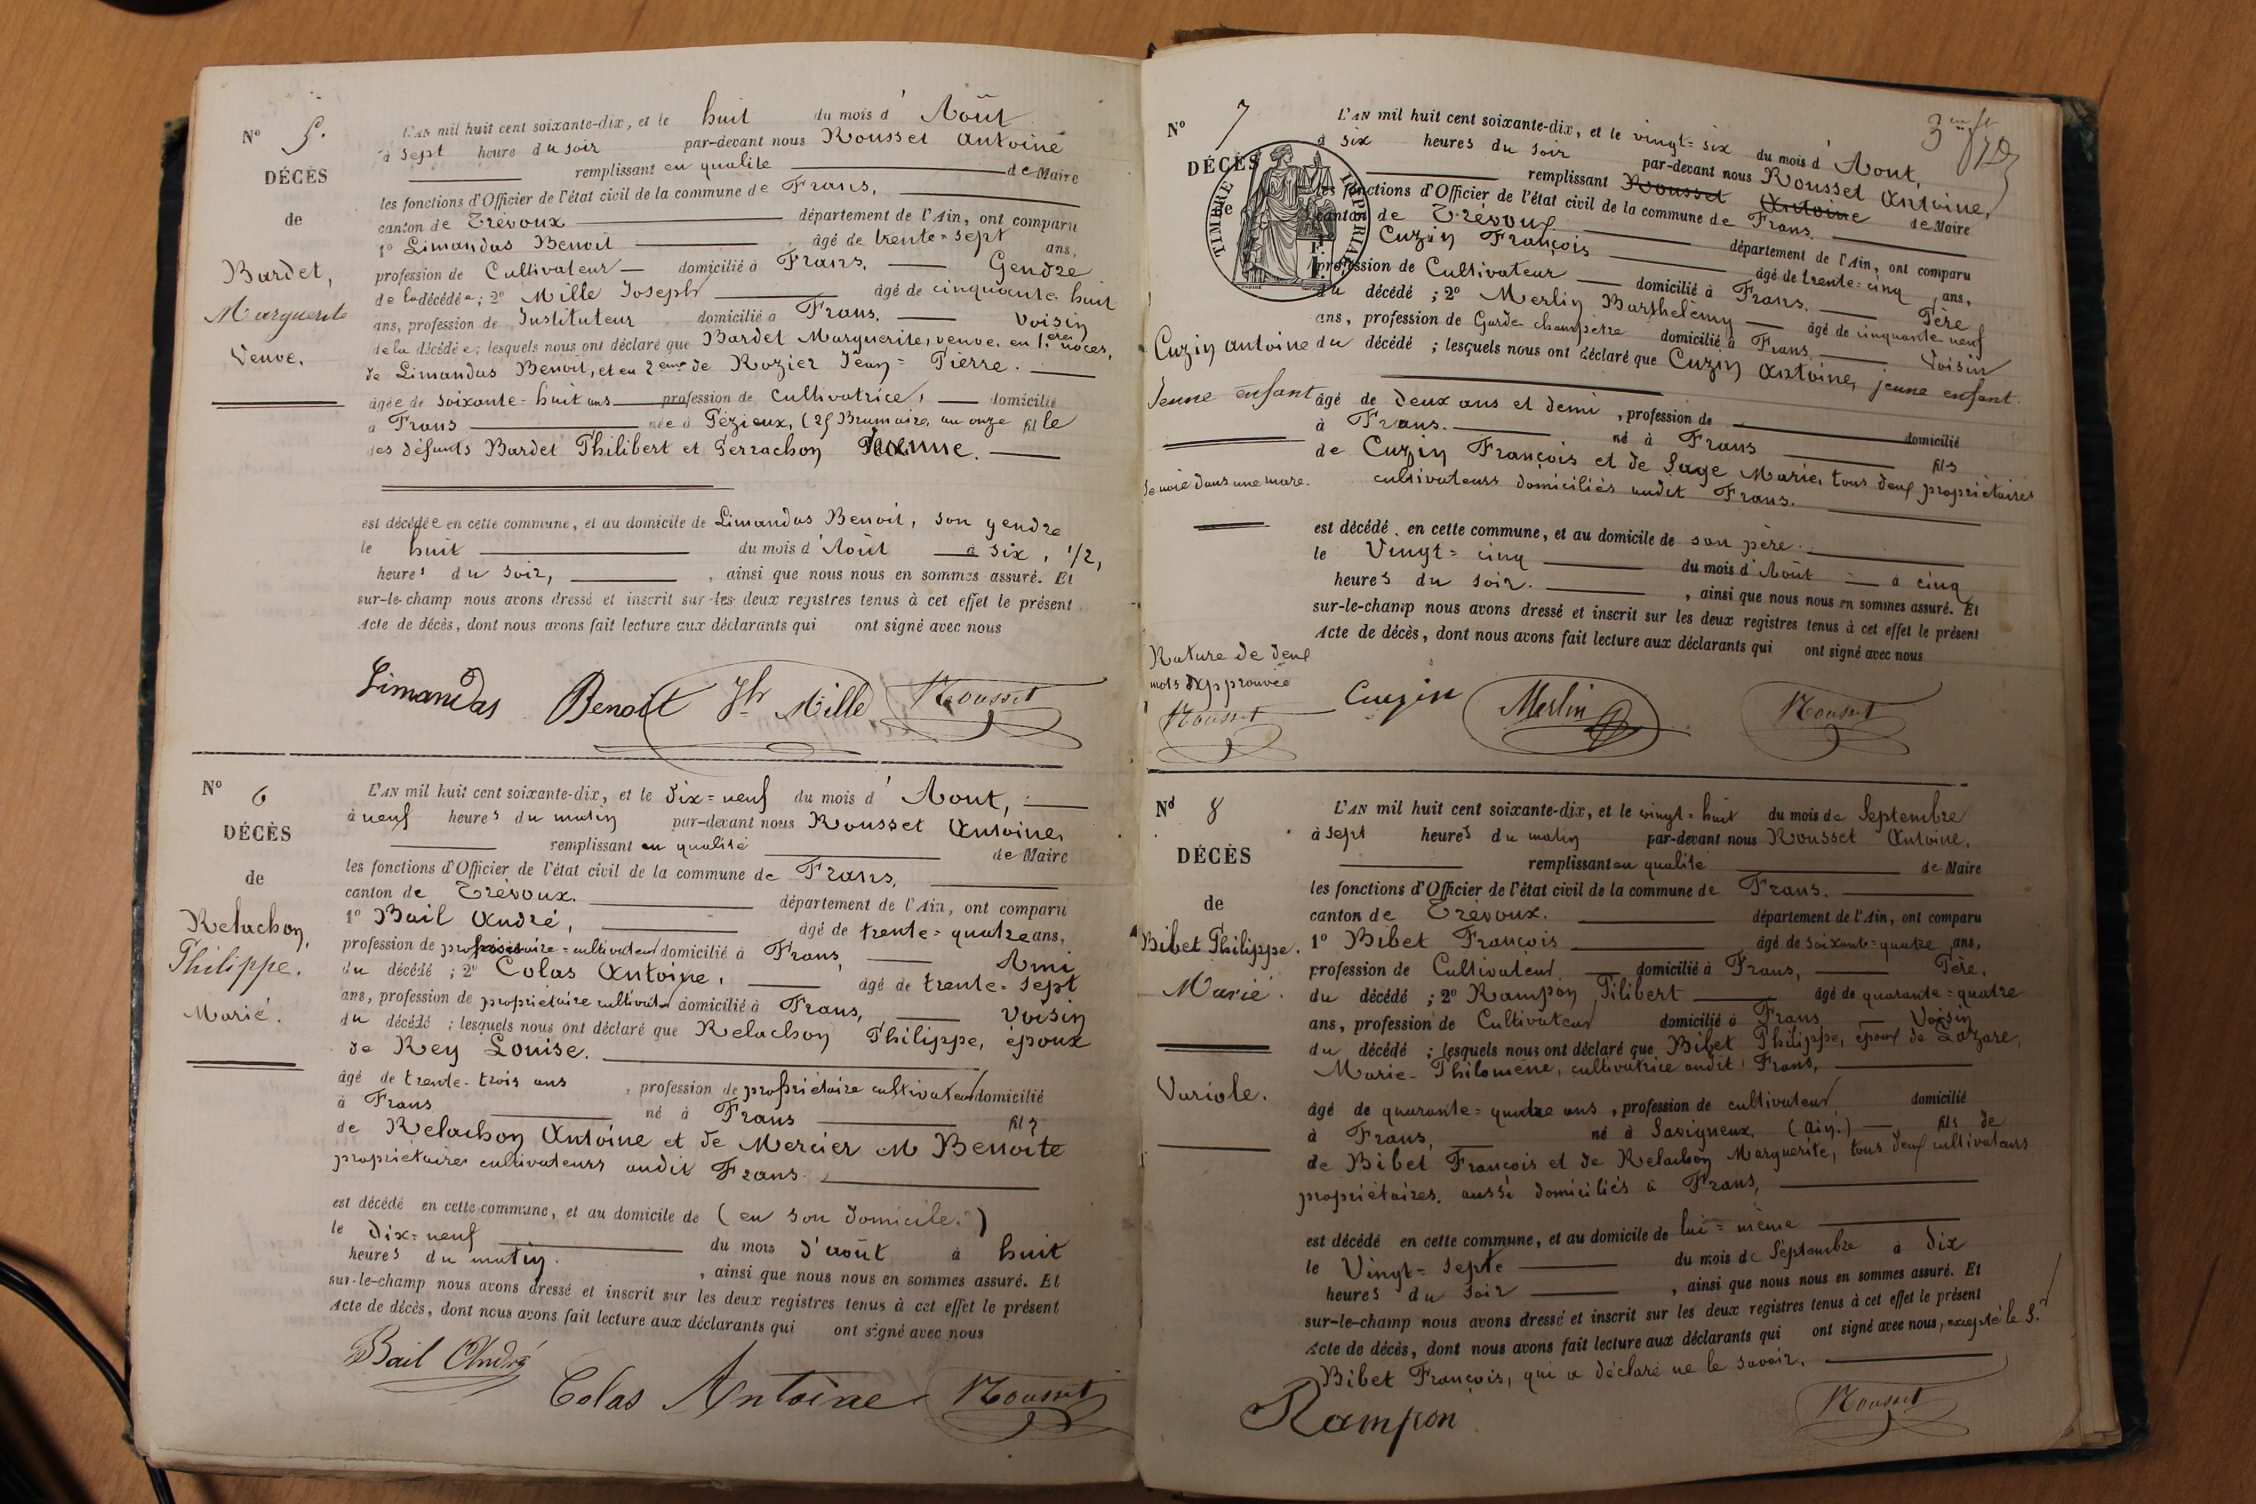 N° 5.
DÉCÈS
de
Bardet,
Marguerite
Veuve.
L'AN mil huit cent soixante-dix, et le huit du mois d'Août
à sept heure du soir par-devant nous Rousset Antoine
remplissant en qualité de Maire
les fonctions d'Officier de l'état civil de la commune de Frans,
canton de Trévoux département de l'Ain, ont comparu
1° Limandas Benoit âgé de trente=sept ans,
profession de Cultivateur domicilié à Frans, Gendre
de la décédée; 2° Mille Joseph âgé de cinquante huit
ans, profession de Instituteur domicilié à Frans, Voisin
de la décédée; lesquels nous ont déclaré que Bardet Marguerite, veuve en 1eres noces,
de Limandas Benoit, et en 2eme de Rozier Jean=Pierre.
âgée de soixante=huit ans profession de cultivatrice, domicilié
à Frans née à Pézieux, (25 Brumaire an onze fille
des défunts Bardet Philibert et Perrachon
est décédée en cette commune, et au domicile de Limandas Benoit, son gendre
le huit du mois d'Août à six, 1/2,
heures du soir, , ainsi que nous nous en sommes assuré. Et
sur-le-champ nous avons dressé et inscrit sur les deux registres tenus à cet effet le présent
Acte de décès, dont nous avons fait lecture aux déclarants qui ont signé avec nous
Limandas Benoit Jh Mille Rousset
N° 6
DÉCÈS
de
Relachon,
Philippe.
Marié.
L'AN mil huit cent soixante-dix, et le dix=neuf du mois d'Aout,
à neuf heures du matin par-devant nous Rousset Antoine,
remplissant en qualité de Maire
les fonctions d'Officier de l'état civil de la commune de Frans,
canton de Trévoux. département de l'Ain, ont comparu
1° Bail André, âgé de trente=quatre ans,
profession de propriétaire=cultivateur domicilié à Frans, Ami
du décédé; 2° Colas Antoine, âgé de trente=sept
ans, profession de propriétaire cultivateur domicilié à Frans, Voisin
du décédé; lesquels nous ont déclaré que Relachon Philippe, époux
de Rey Louise.
âgé de trente-trois ans, profession de propriétaire cultivateur domicilié
à Frans né à Frans fils
de Relachon Antoine et de Mercier M Benoite
propriétaires cultivateurs audit Frans.
est décédé en cette commune, et au domicile de (en son domicile.)
le dix=neuf du mois d'août à huit
heures du matin. , ainsi que nous nous en sommes assuré. Et
sur-le-champ nous avons dressé et inscrit sur les deux registres tenus à cet effet le présent
Acte de décès, dont nous avons fait lecture aux déclarants qui ont signé avec nous
Bail André Colas Antoine Rousset
N° 7
DÉCÈS
de
TIMBRE IMPÉRIAL
Cuzin Antoine
Jeune enfant
Se noie dans une mare.
Rature de deux
mots approuvée
Rousset
L'AN mil huit cent soixante-dix, et le vingt=six du mois d'Aout,
à six heures du soir par-devant nous Rousset Antoine,
remplissant Rousset Antoine de Maire
les fonctions d'Officier de l'état civil de la commune de Frans.
canton de Trévoux. département de l'Ain, ont comparu
Cuzin François âgé de trente=cinq ans,
profession de Cultivateur domicilié à Frans. Père
du décédé; 2° Merlin Barthelemy âgé de cinquante neuf
ans, profession de Garde champêtre domicilié à Frans Voisin
du décédé; lesquels nous ont déclaré que Cuzin Antoine, jeune enfant.
âgé de deux ans et demi, profession de domicilié
à Frans. né à Frans fils
de Cuzin François et de Sage Marie, tous deux propriétaires
cultivateurs domiciliés audit Frans.
est décédé en cette commune, et au domicile de son père.
le Vingt=cinq du mois d'Août à cinq
heures du soir. , ainsi que nous nous en sommes assuré. Et
sur-le-champ nous avons dressé et inscrit sur les deux registres tenus à cet effet le présent
Acte de décès, dont nous avons fait lecture aux déclarants qui ont signé avec nous
Cuzin Merlin Rousset
N° 8
DÉCÈS
de
Bibet Philippe.
Marié.
Variole.
L'AN mil huit cent soixante-dix, et le vingt=huit du mois de Septembre
à sept heures du matin par-devant nous Rousset Antoine,
remplissant en qualité de Maire
les fonctions d'Officier de l'état civil de la commune de Frans.
canton de Trévoux. département de l'Ain, ont comparu
1° Bibet François âgé de soixante=quatre ans,
profession de Cultivateur domicilié à Frans, Père.
du décédé; 2° Rampon Pilibert âgé de quarante=quatre
ans, profession de Cultivateur domicilié à Frans Voisin
du décédé; lesquels nous ont déclaré que Bibet Philippe, époux de Lazare,
Marie-Philomène, cultivatrice audit Frans,
âgé de quarante=quatre ans, profession de cultivateur domicilié
à Frans, né à Savigneux (Ain.) fils de
de Bibet François et de Relachon Marguerite, tous deux cultivateurs
propriétaires, aussi domiciliés à Frans,
est décédé en cette commune, et au domicile de lui=même
le Vingt=septe du mois de Septembre à dix
heures du soir , ainsi que nous nous en sommes assuré. Et
sur-le-champ nous avons dressé et inscrit sur les deux registres tenus à cet effet le présent
Acte de décès, dont nous avons fait lecture aux déclarants qui ont signé avec nous, excepté le S.r
Bibet François, qui a déclaré ne le savoir.
Rampon Rousset